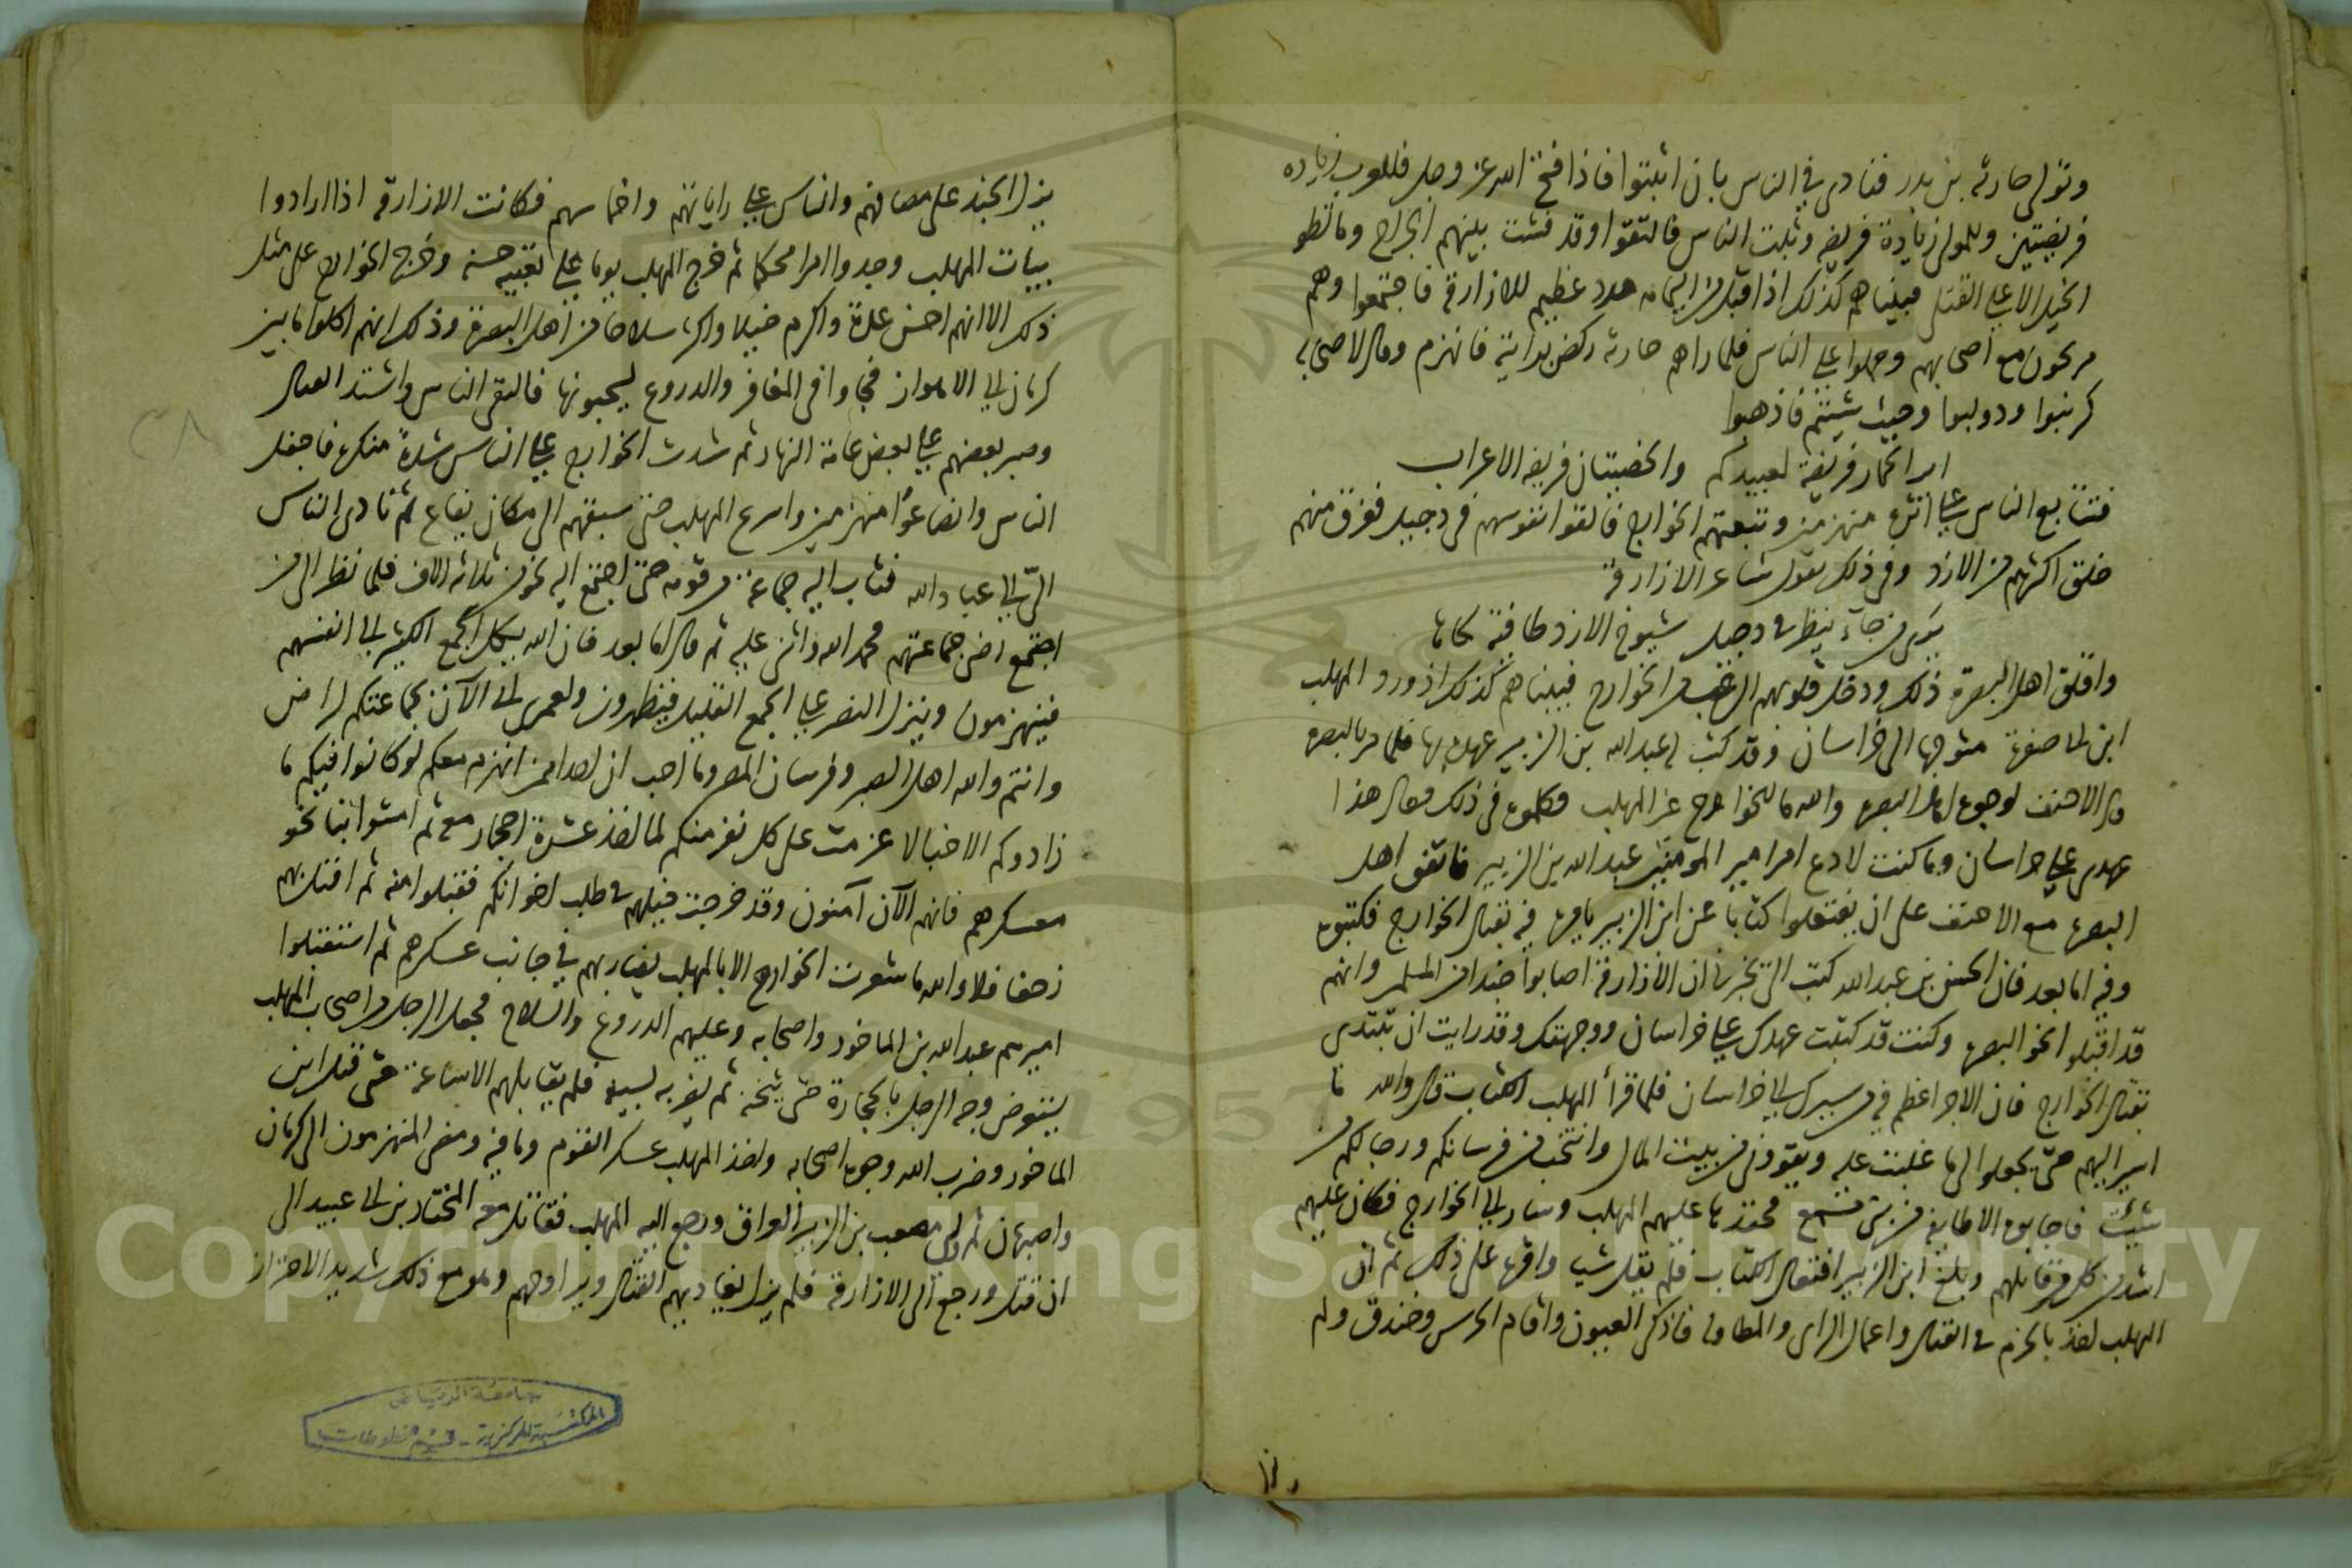 وتولى حارثه بن بدر فنادى في الناس بان اثبتوا فاذا فتح الله عز وجل فللعرب زياده
فريضتين وللموالى زيادة فريضه وثبت الناس فالتقوا وقد فشت بينهم الجراح وما تطو
الخيل الا على القتلى فبيناهم كذلك اذ اقبل من اليمامه مدد عظيم للازارقة فاجتمعوا وهم
مريحون مع اصحابهم وحملوا على الناس فلما راهم حارثه ركض برايته فانهزم وقال لاصحابه
كرنبوا ودولبوا وحيث شيتم فاذهبوا
اير الحمار فريضة لعبيدكم والخصيتان فريضه الاعراب
فتتابع الناس على اثره منهزمين وتبعتهم الخوارج فالقوا نفوسهم في دجيل فغرق منهم
خلق اكثرهم من الازد وفى ذلك يقول شاعر الازارقة
يرى من جاء ينظر فى دجيل شيوخ الازد طافية لحاها
واقلق اهل البصرة ذلك ودخل قلوبهم الرعب من الخوارج فبيناهم كذلك اذ ورد المهلب
ابن ابى صفرة متوجها الى خراسان وقد كتب له عبد الله بن الزبير عهده بها فلما مر بالبصره
قال الاحنف لوجوه اهل البصره والله ما للخوارج غير المهلب فكلموه فى ذلك فقال هذا
عهدى على خراسان وما كنت لادع امر امير المومنين عبد الله بن الزبير فاتفق اهل
البصره مع الاحنف على ان يفتعلوا كتابا عن ابن الزبير يامره فيه بقتال الخوارج فكتبوه
وفيه اما بعد فان الحسن بن عبد الله كتب الى يخبرنا ان الازارقة اصابوا جندا من المسلمين وانهم
قد اقبلوا نحو البصره وكنت قد كتبت عهدك على خراسان ووجهتك وقد رايت ان تبتدى
بقتال الخوارج فان الاجر اعظم فيه من سيرك الى خراسان فلما قرأ المهلب الكتاب قال والله ما
اسير اليهم حتى يجعلوا لى ما غلبت عليه ويقوونى من بيت المال وانتخب من فرسانكم ورجالكم من
شيت فاجابوه الا طايفه من بنى مسمع فحقدها عليهم المهلب وسار الى الخوارج فكان عليهم
اشد من كل من قاتلهم وبلغ ابن الزبير افتعال الكتاب فلم يقل شيا واقره على ذلك ثم ان
المهلب اخذ بالحزم فى القتال واعمال الراى والمطاوله فاذكى العيون واقام الحرس وخندق ولم
يزل الجند على مصافهم والناس على راياتهم واخماسهم فكانت الازارقة اذا ارادوا
بيات المهلب وجدوا امرا محكما ثم خرج المهلب يوما على تعبيه حسنه وخرج الخوارج على مثل
ذلك الا انهم احسن عدة واكرم خيلا واكثر سلاحا من اهل البصرة وذلك انهم اكلوا ما بين
كرمان الى الاهواز فجاوا فى المغافر والدروع يسحبونها فالتقى الناس واشتد القتال
وصبر بعضهم على بعض عامة النهار ثم شدت الخوارج على الناس شدة منكره فاجفل
الناس وانصاعوا منهزمين واسرع المهلب حتى سبقهم الى مكان يفاع ثم نادى الناس
الىّ الى عباد الله فثاب اليه جماعة من قومه حتى اجتمع اليه نحو من ثلاثه الاف فلما نظر الى من
اجتمع رضى جماعتهم فحمد الله واثنى عليه ثم قال اما بعد فان الله يكل الجمع الكثير الى انفسهم
فينهزمون وينزل النصر على الجمع القليل فيظهرون ولعمرى انى الآن بجماعتكم لراض
وانتم والله اهل الصبر وفرسان المصر وما احب ان احدا ممن انهزم معكم لو كانوا فيكم ما
زادوكم الا خبالا عزمت على كل نفر منكم لما اخذ عشرة احجار معه ثم امشوا بنا نحو
معسكرهم فانهم الآن آمنون وقد خرجت خيلهم فى طلب اخوانكم فقبلوا منه ثم اقبل بهم
زحفا فلا والله ما شعرت الخوارج الا بالمهلب يضاربهم في جانب عسكرهم ثم استقبلوا
اميرهم عبد الله بن الماخور واصحابه وعليهم الدروع والسلاح فجعل الرجل من اصحاب المهلب
يستعرض وجه الرجل بالحجارة حتى يثخنه ثم يضربه بسيفه فلم يقاتلهم الا ساعة حتى قتل ابن
الماخور وضرب الله وجوه اصحابه واخذ المهلب عسكر القوم وما فيه ومضى المنهزمون الى كرمان
واصبهان ثم ولى مصعب بن الزبير العراق ورجع اليه المهلب فقاتل معه المختار بن ابى عبيد الى
ان قتل ورجع الى الازارقة فلم يزل يغاديهم القتال ويراوحهم وهو مع ذلك شديد الاحتراز
جامعة الرياض
المكتبة المركزية - قسم المخطوطات
Copyright © King Saud University
1957